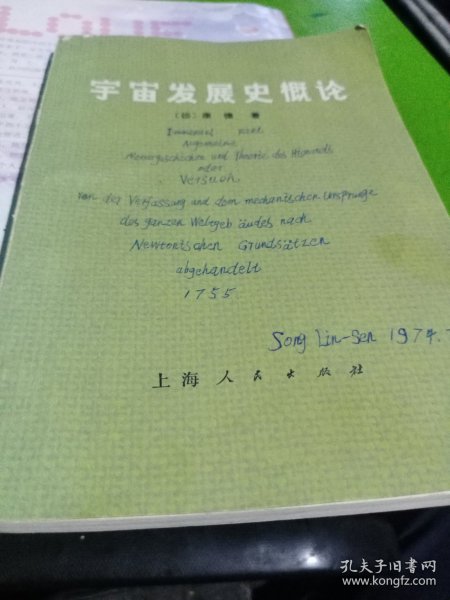 宇宙发展史概论
〔德〕康德 著
Immanuel Kant
Allgemeine
Naturgeschichte und Theorie des Himmels
oder
Versuch
von der Verfassung und dem mechanischen Ursprunge
des ganzen Weltgebäudes nach
Newtonischen Grundsätzen
abgehandelt
1755
Song Lin-Sen 1974.
上海人民出版社
孔夫子旧书网
www.kongfz.com